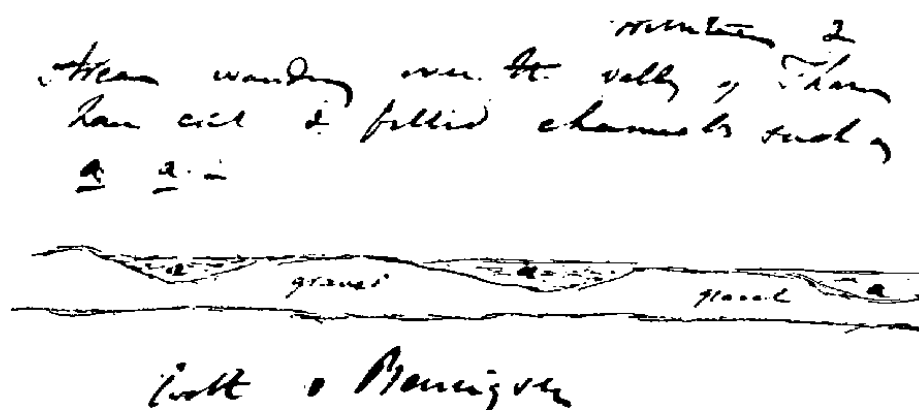 Stream wandering over the valley of Thames
have cut & filled channels such as
a a –
a a a
gravel gravel